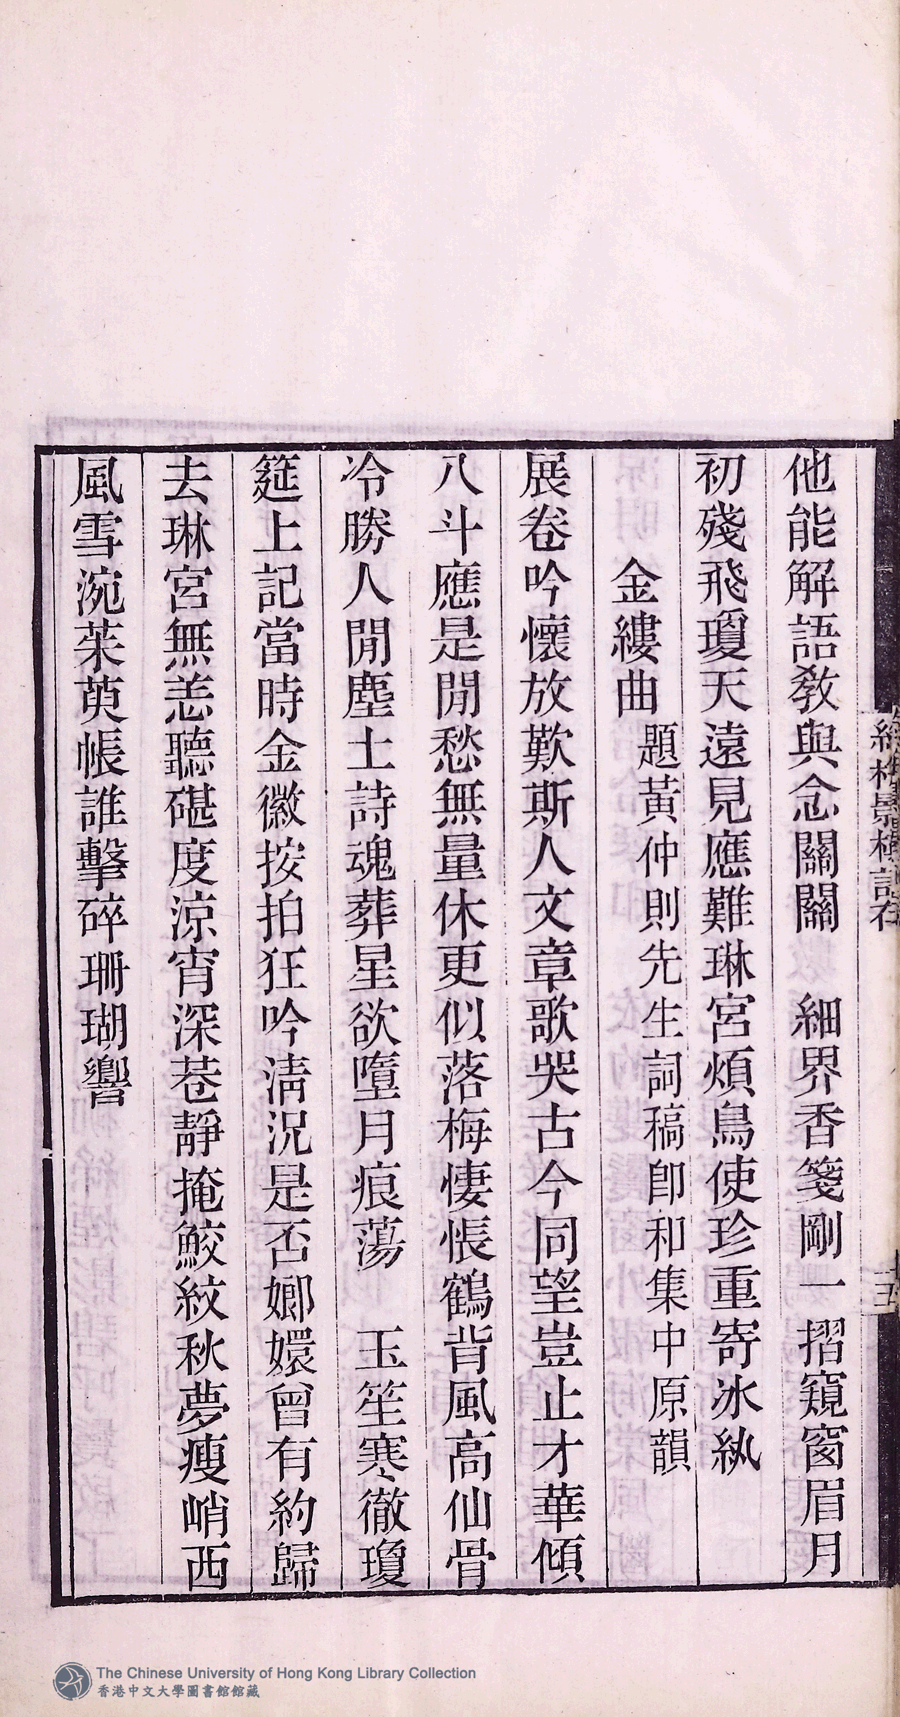 他能解語教與念關關　細界香箋剛一摺窺窗眉月
初殘飛瓊天遠見應難琳宮煩鳥使珍重寄冰紈
金縷曲　題黃仲則先生詞稿卽和集中原韻
展卷吟懷放歎斯人文章歌哭古今同望豈止才華傾
八斗應是閒愁無量休更似落梅悽悵鶴背風高仙骨
冷勝人閒塵土詩魂葬星欲墮月痕蕩　玉笙寒徹瓊
筵上記當時金徽按拍狂吟淸況是否嫏嬛曾有約歸
去琳宮無恙聽碪度涼宵深巷靜掩鮫紋秋夢瘦峭西
風雪涴茱萸帳誰擊碎珊瑚響
The Chinese University of Hong Kong Library Collection
香港中文大學圖書館館藏